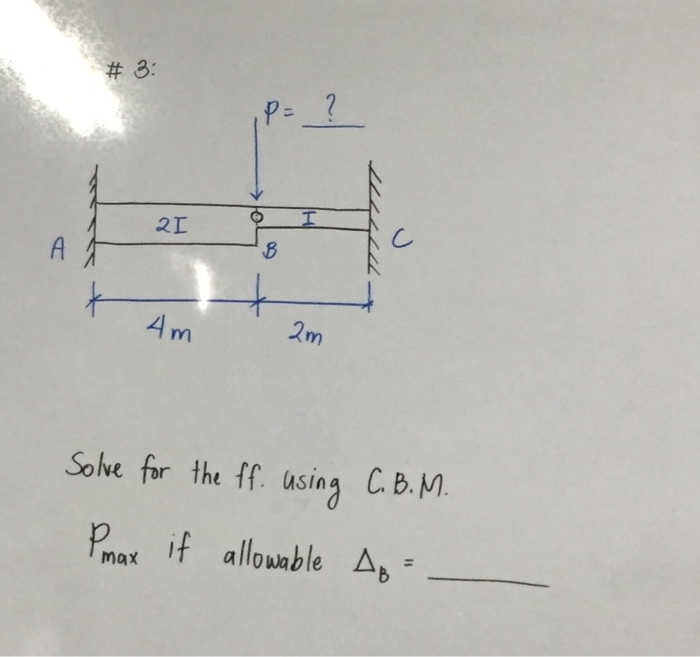 # 3:
P = ?
2I
I
A
B
C
4m
2m
Solve for the ff. using C.B.M.
Pmax if allowable ΔB = ____